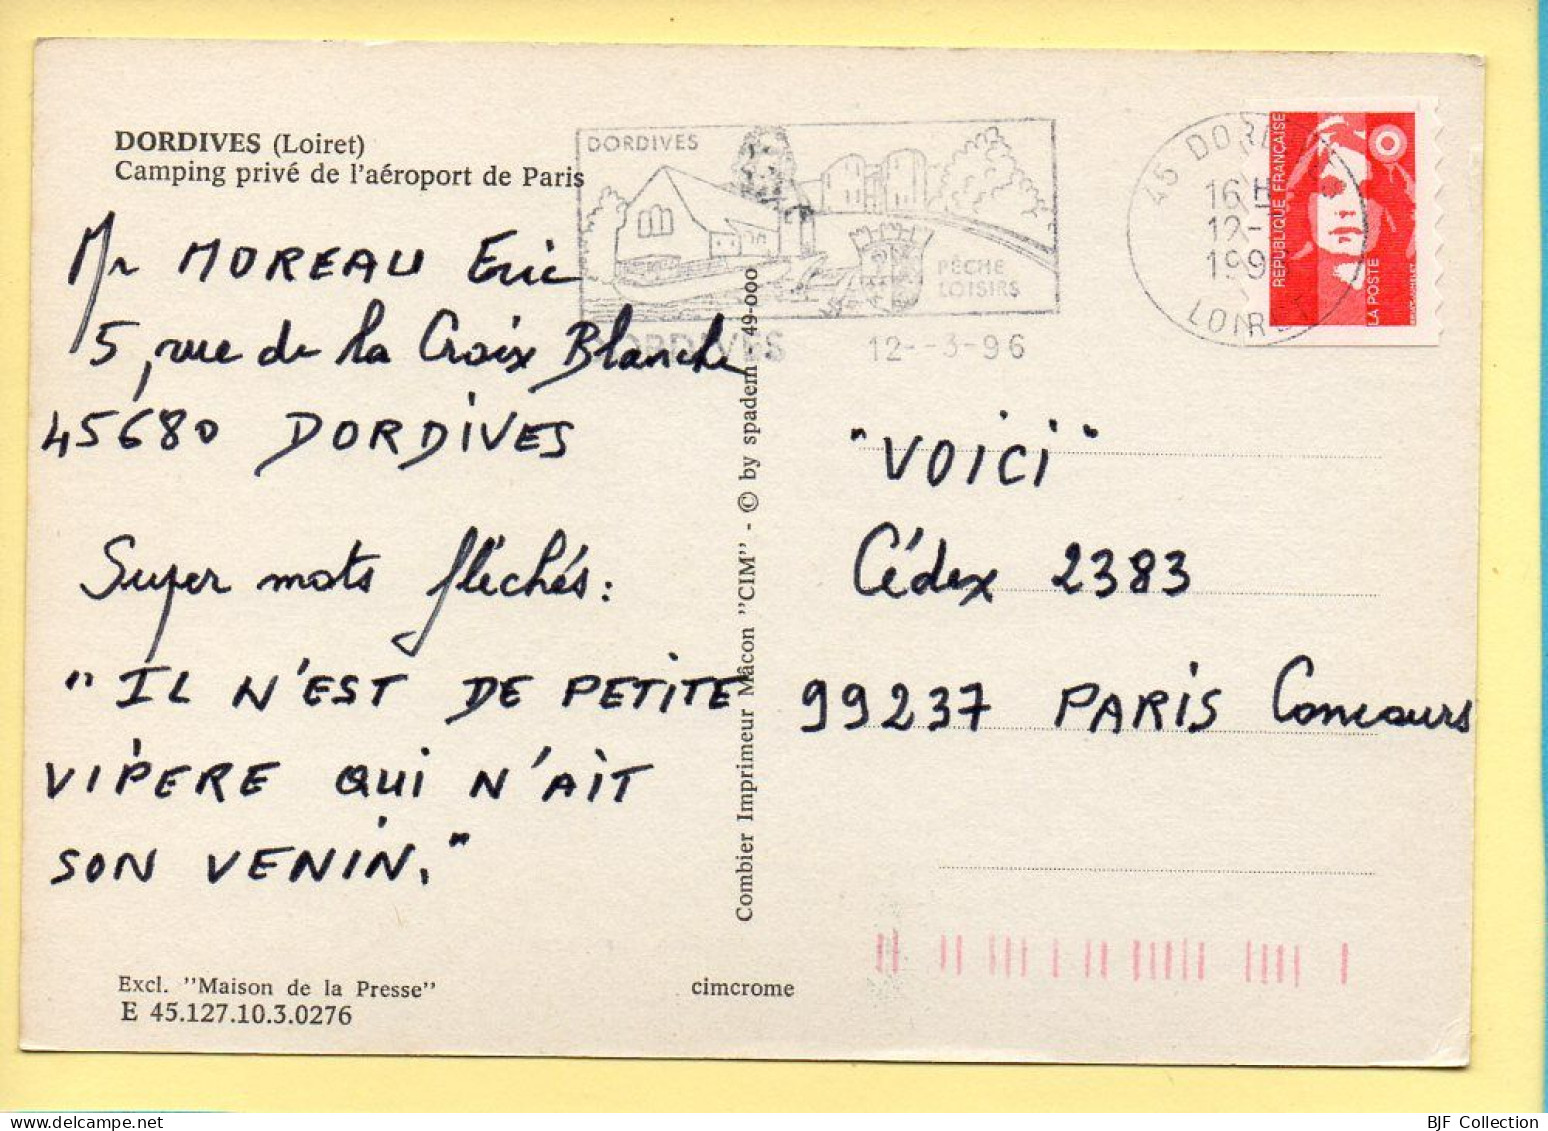 DORDIVES (Loiret)
Camping privé de l'aéroport de Paris
DORDIVES
PÊCHE
LOISIRS
DORDIVES 12--3-96
45 DORD
16 H
12-
199
LOIRET
REPUBLIQUE FRANÇAISE
LA POSTE
Mr MOREAU Eric
5, rue de la Croix Blanche
45680 DORDIVES
Super mots fléchés :
"IL N'EST DE PETITE
VIPÈRE QUI N'AIT
SON VENIN."
Combier Imprimeur Mâcon "CIM" - © by spadem 49-000
"VOICI"
Cédex 2383
99237 PARIS Concours
Excl. "Maison de la Presse"
E 45.127.10.3.0276
cimcrome
BJF Collection